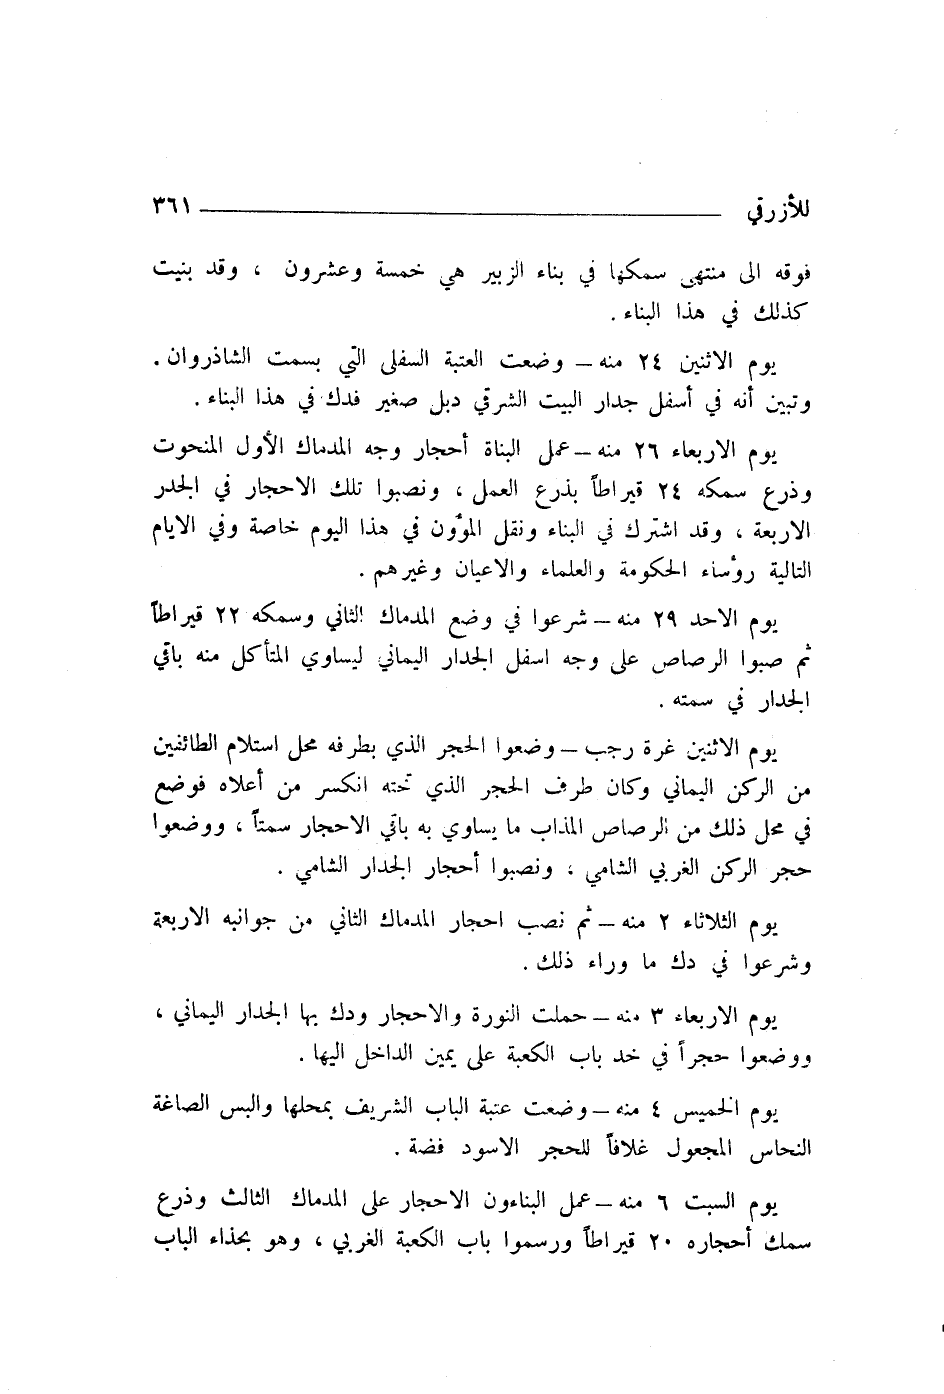 للأزرقي ٣٦١
فوقه الى منتهى سمكها في بناء الزبير هي خمسة وعشرون ، وقد بنيت
كذلك في هذا البناء .
يوم الاثنين ٢٤ منه – وضعت العتبة السفلى التي بسمت الشاذروان .
وتبين أنه في أسفل جدار البيت الشرقي دبل صغير فدك في هذا البناء .
يوم الاربعاء ٢٦ منه – عمل البناة أحجار وجه المدماك الأول المنحوت
وذرع سمكه ٢٤ قيراطاً بذرع العمل ، ونصبوا تلك الاحجار في الجدر
الاربعة ، وقد اشترك في البناء ونقل المؤون في هذا اليوم خاصة وفي الايام
التالية رؤساء الحكومة والعلماء والاعيان وغيرهم .
يوم الاحد ٢٩ منه – شرعوا في وضع المدماك الثاني وسمكه ٢٢ قيراطاً
ثم صبوا الرصاص على وجه اسفل الجدار اليماني ليساوي المتأكل منه باقي
الجدار في سمته .
يوم الاثنين غرة رجب – وضعوا الحجر الذي بطرفه محل استلام الطائفين
من الركن اليماني وكان طرف الحجر الذي تحته انكسر من أعلاه فوضع
في محل ذلك من الرصاص المذاب ما يساوي به باقي الاحجار سمتاً ، ووضعوا
حجر الركن الغربي الشامي ، ونصبوا أحجار الجدار الشامي .
يوم الثلاثاء ٢ منه – ثم نصب احجار المدماك الثاني من جوانبه الاربعة
وشرعوا في دك ما وراء ذلك .
يوم الاربعاء ٣ منه – حملت النورة والاحجار ودك بها الجدار اليماني ،
ووضعوا حجراً في خد باب الكعبة على يمين الداخل اليها .
يوم الخميس ٤ منه – وضعت عتبة الباب الشريف بمحلها والبس الصاغة
النحاس المجعول غلافاً للحجر الاسود فضة .
يوم السبت ٦ منه – عمل البناءون الاحجار على المدماك الثالث وذرع
سمك أحجاره ٢٠ قيراطاً ورسموا باب الكعبة الغربي ، وهو بحذاء الباب